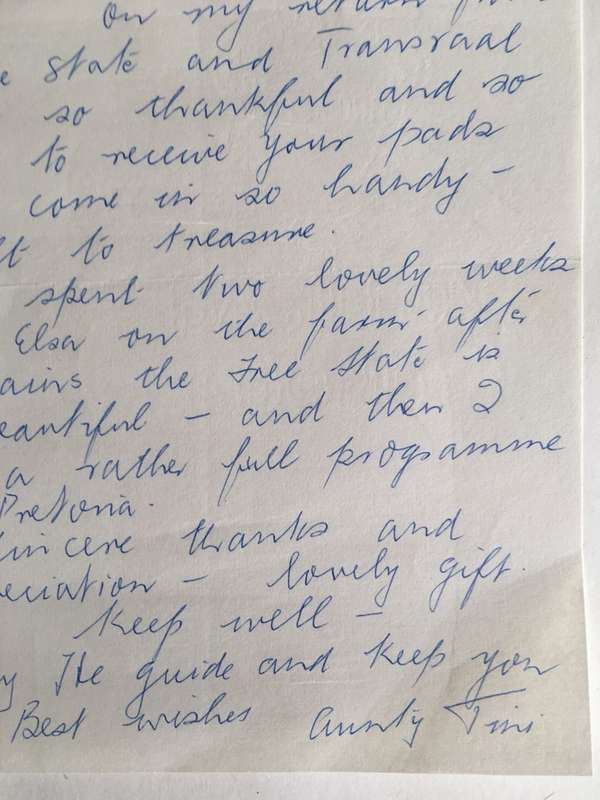 On my return from
e State and Transvaal
so thankful and so
to receive your pads
come in so handy -
ft to treasure.
spent two lovely weeks
Elsa on the farm after
ains the Free State is
eautiful - and then 2
a rather full programme
Pretoria.
incere thanks and
eciation - lovely gift.
Keep well -
y He guide and keep you
Best wishes Aunty Tini